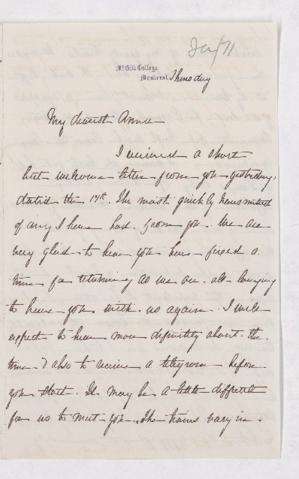 Jan/71
McGill College,
Montreal, Thursday
My dearest Anna
I received a short
but welcome letter from you yesterday,
dated the 17th. The most quickly transmitted
of any I have had from you. We are
very glad to hear you have fixed a
time for returning as we are all longing
to have you with us again. I will
expect to hear more definitely about the
time & also to receive a telegram before
you start. It may be a little difficult
for us to meet you. The trains vary in